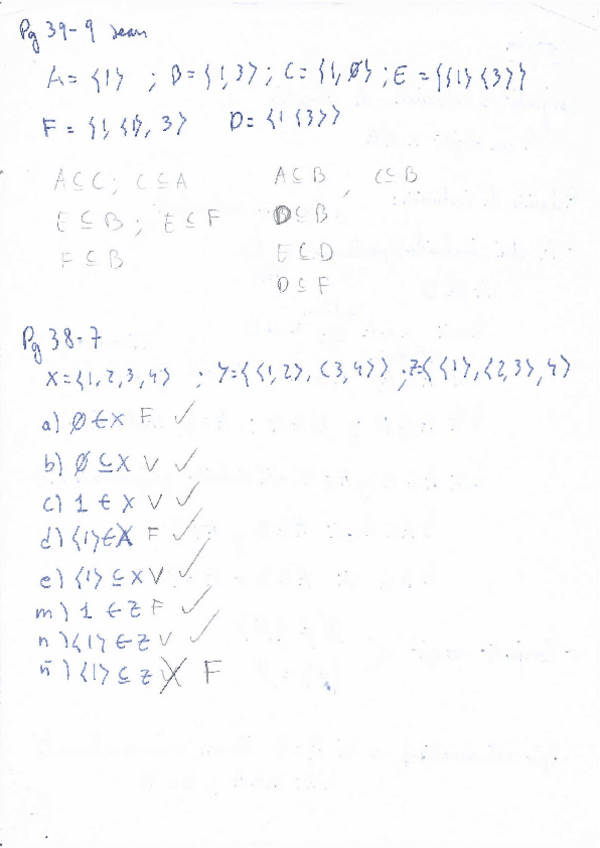 Pg 39-9 sean
A = {1} ; B = {1,3} ; C = {1,Ø} ; E = {{1} {3}}
F = {1, {1}, 3} D = {1 {3}}
A ⊆ C ; C ⊆ A A ⊆ B , C ⊆ B
E ⊆ B ; E ⊆ F D ⊆ B
F ⊆ B E ⊆ D
D ⊆ F
Pg 38-7
X = {1,2,3,4} ; Y = {{1,2}, {3,4}} ; Z = {{1}, {2,3}, 4}
a) Ø ∈ X F ✓
b) Ø ⊆ X V ✓
c) 1 ∈ X V ✓
d) {1} ∈ X F ✓
e) {1} ⊆ X V ✓
m) 1 ∈ Z F ✓
n) {1} ∈ Z V ✓
ñ) {1} ⊆ Z F